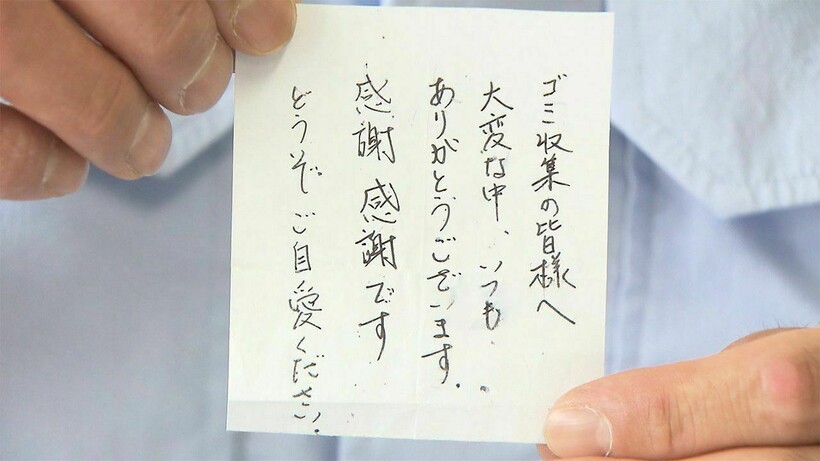 ゴミ収集の皆様へ
大変な中、いつも
ありがとうございます.
感謝感謝です
どうぞご自愛ください.